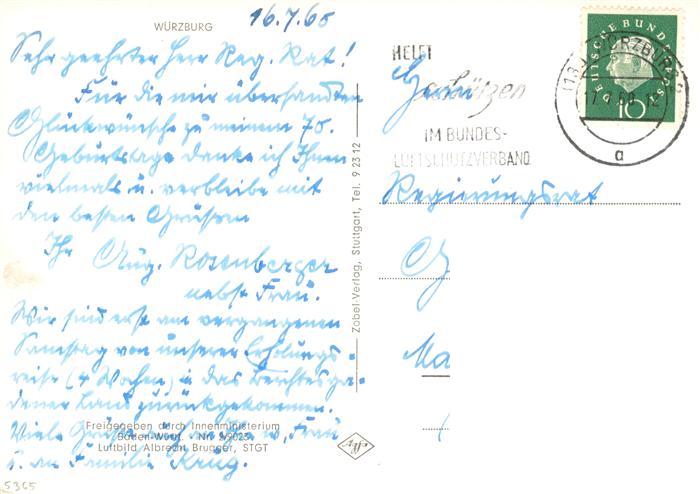 WÜRZBURG
16.7.60
Sehr geehrter Herr Reg. Rat!
Für die mir übersandten
Glückwünsche zu meinem 70.
Geburtstage danke ich Ihnen
vielmals u. verbleibe mit
den besten Grüßen
Ihr Aug. Rosenberger
nebst Frau.
Wir sind erst am vergangenen
Samstag von unserer Erholungs-
reise (4 Wochen) in das Berchtesga-
dener Land zurückgekommen.
Viele Grüße an Frau
u. an Familie Krug.
Freigegeben durch Innenministerium
Baden-Württ. - Nr. 2/9023
Luftbild Albrecht Brugger, STGT
5365
Zobel-Verlag, Stuttgart, Tel. 9 23 12
HELFT
schützen
IM BUNDES-
LUFTSCHUTZVERBAND
DEUTSCHE BUNDESPOST
10
WÜRZBURG
a
Herrn
Regierungsrat
G
Ma